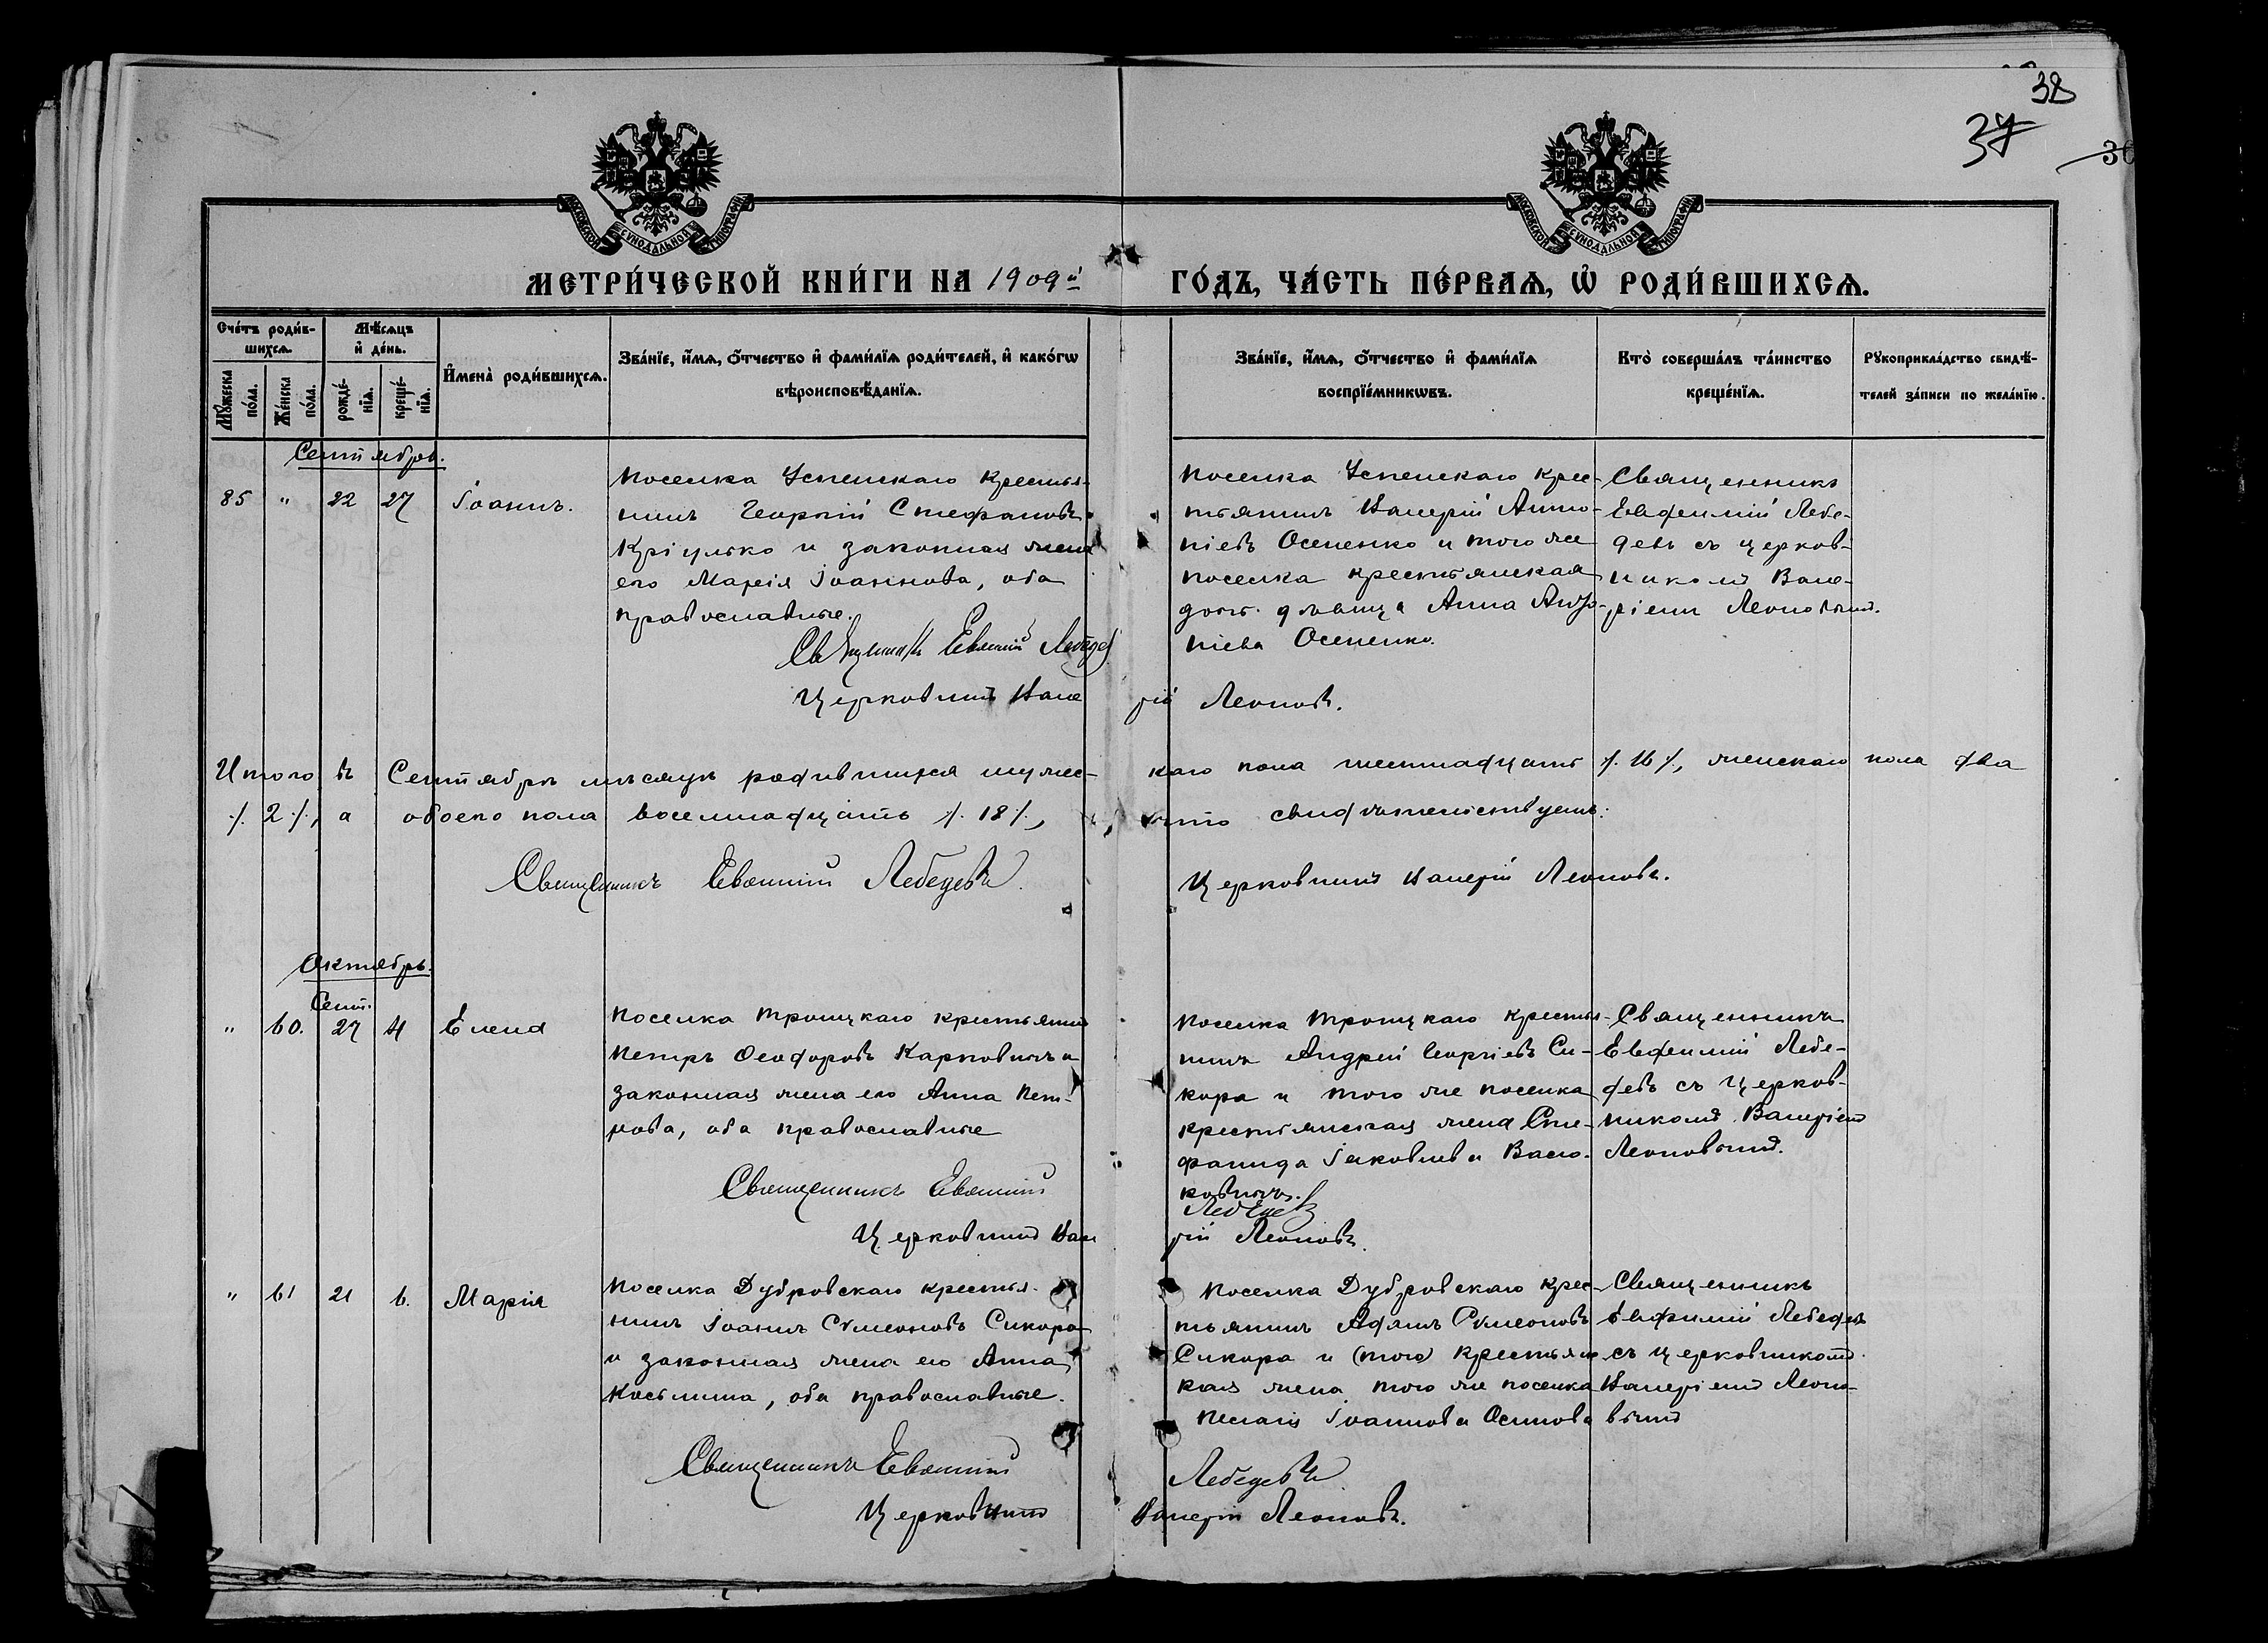 38
37
36
МОСКОВСКОЙ СѴНОДАЛЬНОЙ ТИПОГРАФІИ
МОСКОВСКОЙ СѴНОДАЛЬНОЙ ТИПОГРАФІИ
МЕТРИ́ЧЕСКОЙ КНИ́ГИ НА 1909й ГО́ДЪ, ЧА́СТЬ ПЕ́РВАѦ, Ѡ҆ РОДИ́ВШИХСѦ.
Сче́тъ роди́в-
шихсѧ.
Мꙋ́жеска по́ла.
Же́нска по́ла.
Мѣ́сѧцъ
и҆ де́нь.
рожде́-
нїѧ.
креще́-
нїѧ.
И҆мена̀ роди́вшихсѧ.
Зва́нїе, и҆́мѧ, ѻ҆́тчество и҆ фами́лїѧ роди́телей, и҆ како́гѡ
вѣроисповѣ́данїѧ.
Зва́нїе, и҆́мѧ, ѻ҆́тчество и҆ фами́лїѧ
воспрїе́мникѡвъ.
Кто̀ соверша́лъ та́инство
креще́нїѧ.
Рꙋкоприкла́дство свидѣ́-
телей за́писи по жела́нїю.
Сентябрь.
85 " 22 27 Іоаннъ.
Поселка Успенскаго крестья-
нинъ Георгій Стефановъ
Кріулько и законная жена
его Марія Іоаннова, оба
православные.
Священникъ Евѳимій Лебедевъ
Церковникъ Вале
Поселка Успенскаго крес-
тьянинъ Валерій Анто-
ніевъ Осененко и того же
поселка крестьянская
дочь дѣвица Анна Анто-
ніева Осененко.
рій Леоновъ.
Священникъ
Евфимій Лебе-
девъ съ церков-
никомъ Вале-
ріемъ Леоновымъ.
Итого въ Сентябрѣ мѣсяцѣ родившихся мужес-
каго пола шестнадцать ./. 16 ./., женскаго пола два
./. 2 ./., а обоего пола восемнадцать ./. 18 ./.,
что свидѣтельствуемъ:
Священникъ Евѳимій Лебедевъ.
Церковникъ Валерій Леоновъ.
Октябрь.
Сент.
" 60. 27 4 Елена
Поселка Троицкаго крестьянинъ
Петръ Ѳеодоровъ Карповичъ и
законная жена его Анна Пет-
рова, оба православные
Священникъ Евѳимій
Церковникъ Вале
Поселка Троицкаго крестья-
нинъ Андрей Георгіевъ Си-
кора и того же поселка
крестьянская жена Сте-
фанида Іаковлева Васю-
ковичъ.
Лебедевъ
рій Леоновъ.
Священникъ
Евфимій Лебе-
девъ съ церков-
никомъ Валеріемъ
Леоновымъ.
" 61 21 6. Марія
Поселка Дубровскаго крестья-
нинъ Іоаннъ Сѵмеоновъ Сикора
и законная жена его Анна
Косьмина, оба православные.
Священникъ Евѳимій
Церковникъ
Поселка Дубровскаго крес-
тьянинъ Адамъ Сѵмеоновъ
Сикора и (того) крестьянс-
кая жена того же поселка
Пелагія Іоаннова Осипова
Лебедевъ
Валерій Леоновъ.
Священникъ
Евфимій Лебедевъ
съ церковникомъ
Валеріемъ Леоно-
вымъ